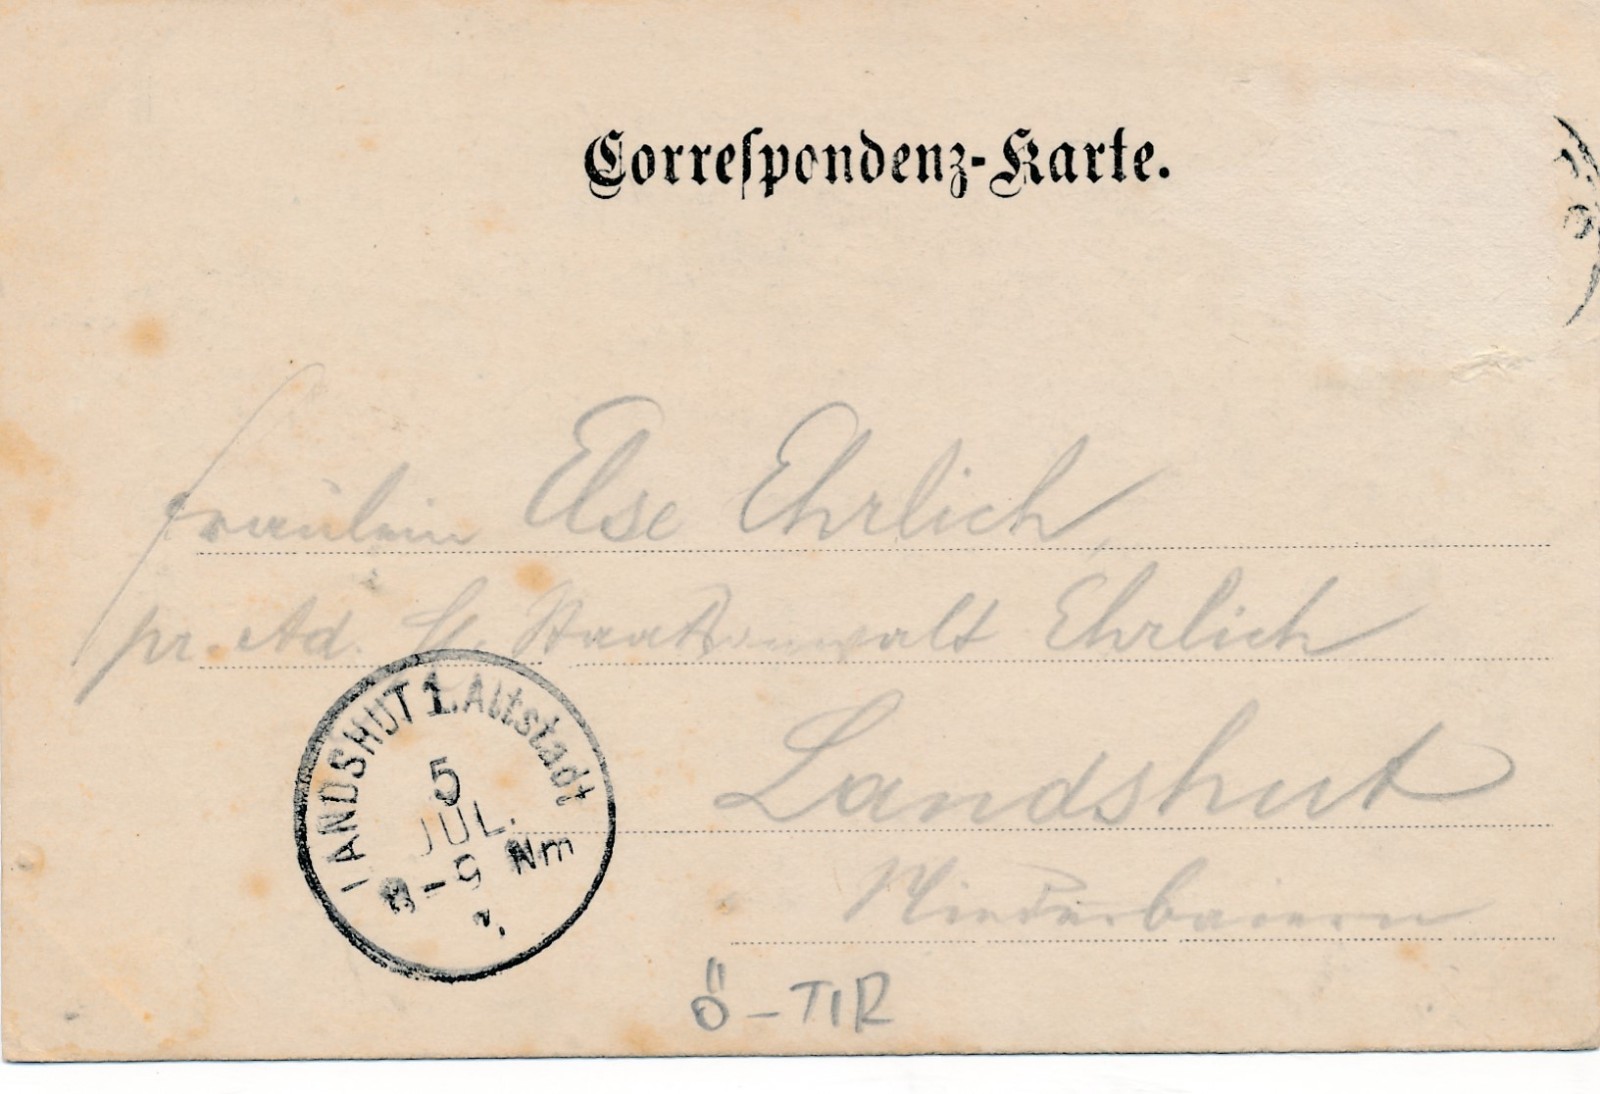 Correspondenz-Karte.
Fräulein Else Ehrlich,
pr. Ad. H. Staatsanwalt Ehrlich
Landshut
Niederbaiern
LANDSHUT 1. Altstadt
5
JUL.
8-9 Nm
Ö - TIR